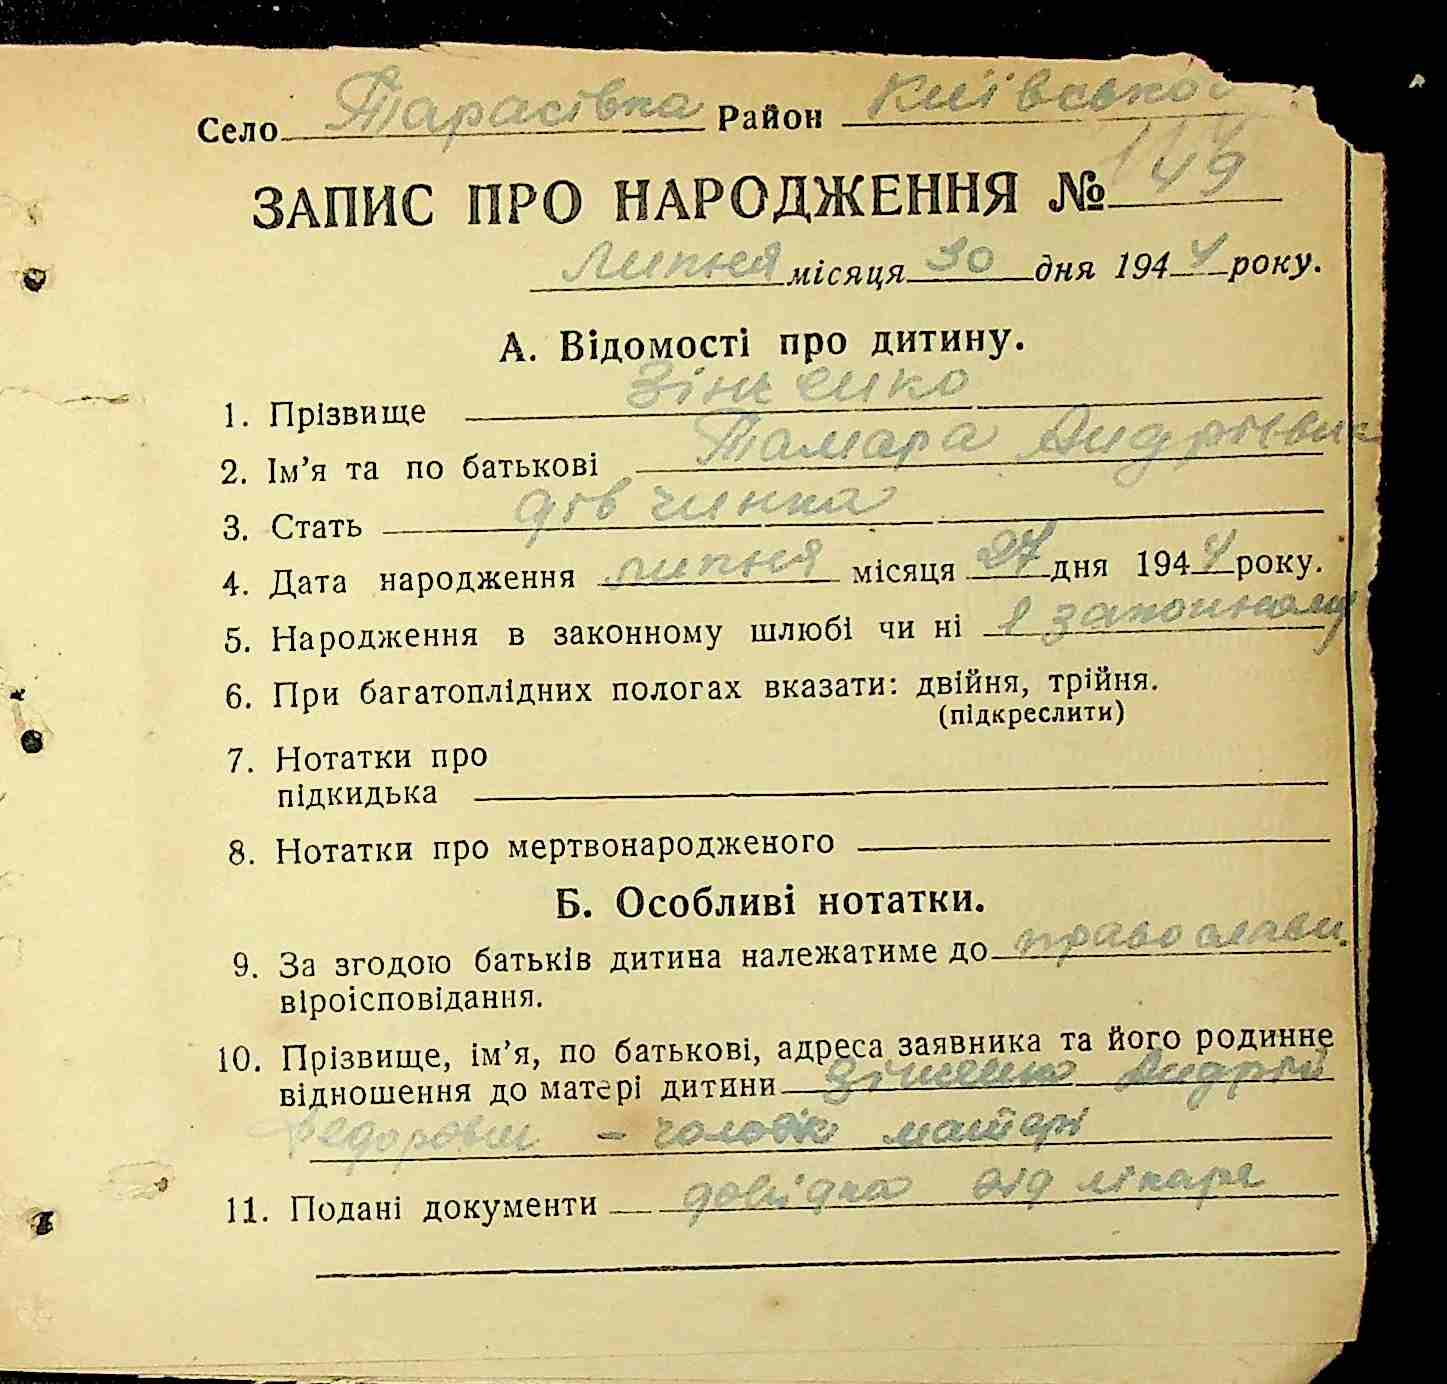 Село Тарасівка Район Київської
ЗАПИС ПРО НАРОДЖЕННЯ № 49
липня місяця 30 дня 1944 року.
А. Відомості про дитину.
1. Прізвище Зінченко
2. Ім'я та по батькові Тамара Андріївна
3. Стать дівчинка
4. Дата народження липня місяця 27 дня 1944 року.
5. Народження в законному шлюбі чи ні в законному
6. При багатоплідних пологах вказати: двійня, трійня.
(підкреслити)
7. Нотатки про
підкидька
8. Нотатки про мертвонародженого
Б. Особливі нотатки.
9. За згодою батьків дитина належатиме до православн.
віроісповідання.
10. Прізвище, ім'я, по батькові, адреса заявника та його родинне
відношення до матері дитини Зінченко Андрій
Федорович - чоловік матері
11. Подані документи довідка від лікаря